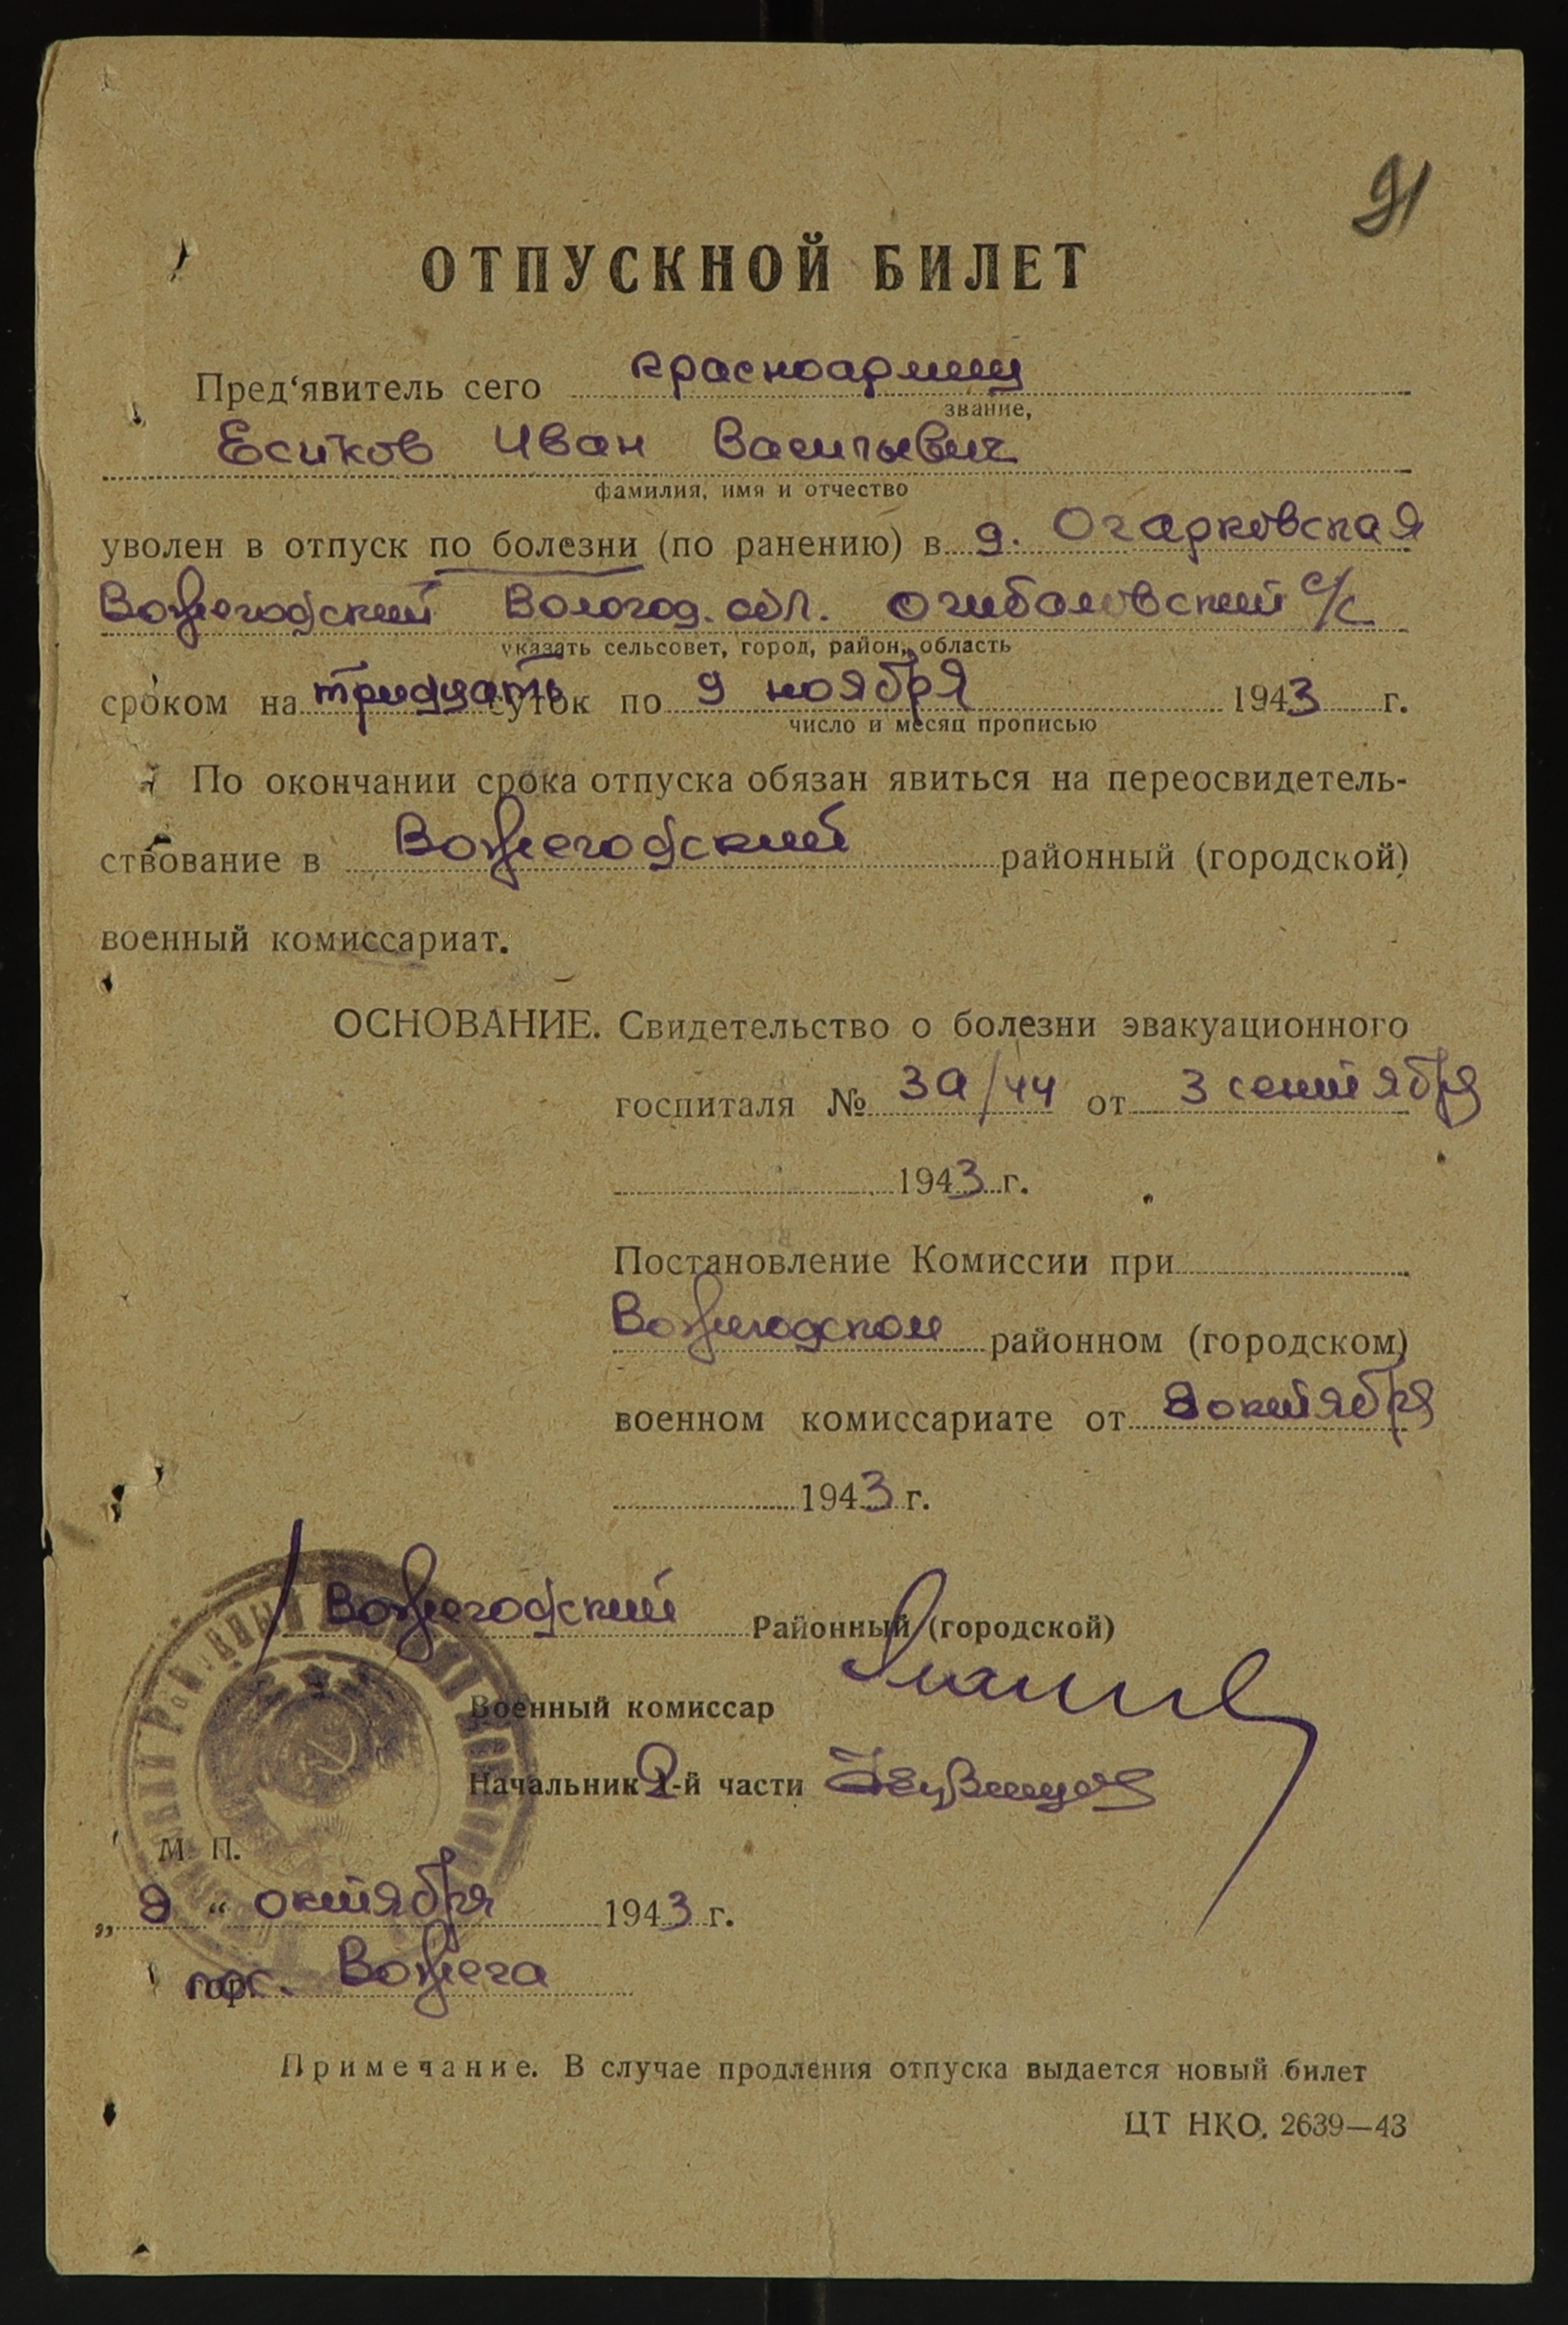 91
ОТПУСКНОЙ БИЛЕТ
Пред'явитель сего красноармеец
звание,
Есиков Иван Васильевич
фамилия, имя и отчество
уволен в отпуск по болезни (по ранению) в д. Огарковская
Вожегодский Вологод. обл. Огибаловский с/с
указать сельсовет, город, район, область
сроком на тридцать суток по 9 ноября 1943 г.
число и месяц прописью
По окончании срока отпуска обязан явиться на переосвидетель-
ствование в Вожегодский районный (городской)
военный комиссариат.
ОСНОВАНИЕ. Свидетельство о болезни эвакуационного
госпиталя № за/44 от 3 сентября
1943 г.
Постановление Комиссии при
Вожегодском районном (городском)
военном комиссариате от 8 октября
1943 г.
Вожегодский Районный (городской)
Военный комиссар
Начальник 2-й части
М. П.
„ 9 “ октября 1943 г.
пос. Вожега
Примечание. В случае продления отпуска выдается новый билет
ЦТ НКО. 2639—43